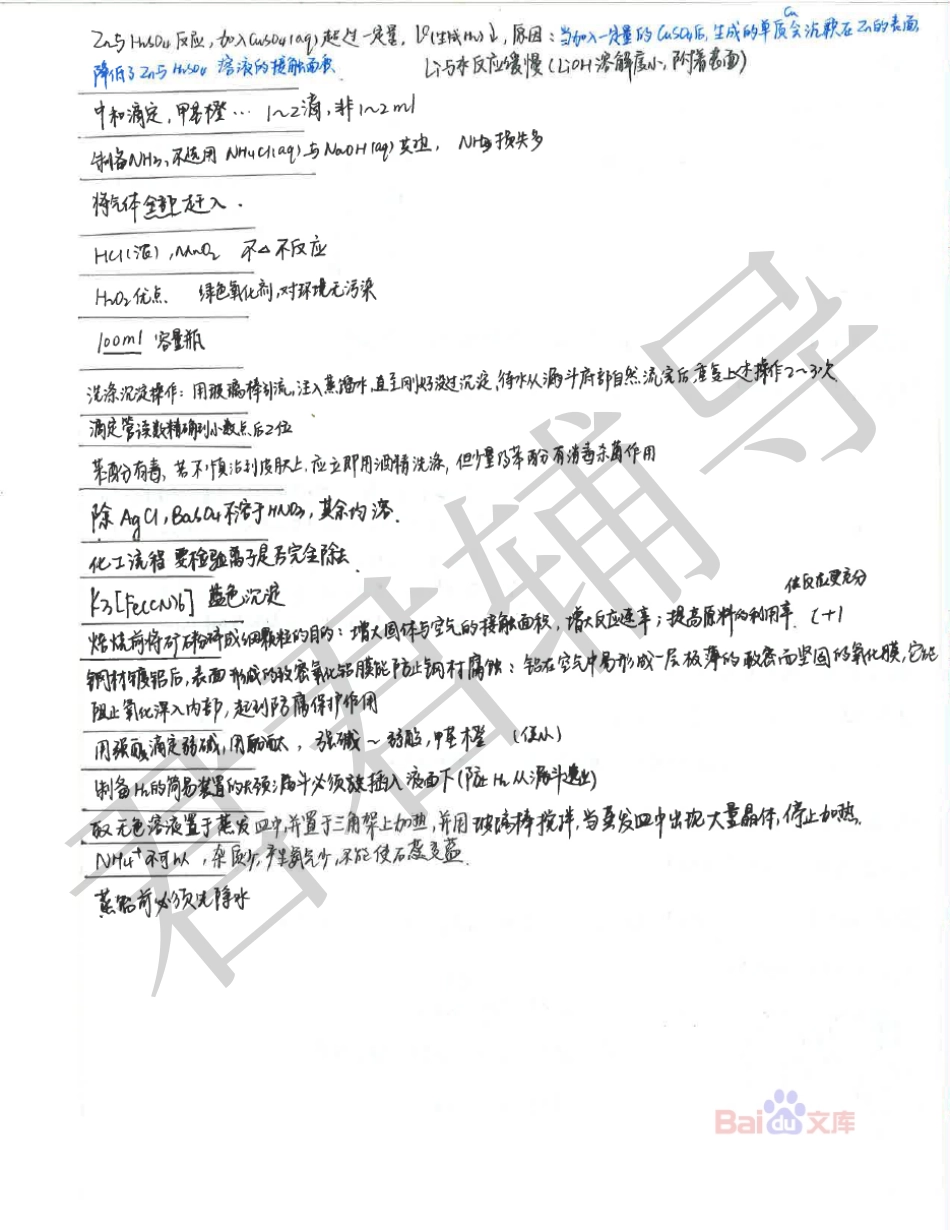 Zn与H₂SO₄反应,加入CuSO₄(aq)超过一定量,V(生成H₂)↓,原因:当加入一定量的CuSO₄后,生成的单质Cu会沉积在Zn的表面,
降低了Zn与H₂SO₄溶液的接触面积. Li与水反应缓慢(LiOH溶解度小,附着表面)
中和滴定,甲基橙… 1~2滴,非1~2ml
制备NH₃,不选用NH₄Cl(aq)与NaOH(aq)共热, NH₃损失多
将气体全部赶入.
HCl(浓),MnO₂ 不△不反应
H₂O₂优点. 绿色氧化剂,对环境无污染
100ml 容量瓶
洗涤沉淀操作:用玻璃棒引流,注入蒸馏水,直至刚好没过沉淀,待水从漏斗底部自然流完后,重复上述操作2~3次
滴定管读数精确到小数点后2位
苯酚有毒,若不慎沾到皮肤上,应立即用酒精洗涤,但少量的苯酚有消毒杀菌作用
除AgCl,BaSO₄不溶于HNO₃,其余均溶.
化工流程 要检验离子是否完全除去
K₃[Fe(CN)₆] 蓝色沉淀
焙烧前将矿粉碎成细颗粒的目的:增大固体与空气的接触面积,增大反应速率;提高原料的利用率. (+1
使反应更充分
钢材镀铝后,表面形成的致密氧化铝膜能防止钢材腐蚀:铝在空气中易形成一层极薄的致密而坚固的氧化膜,它能
阻止氧化深入内部,起到防腐保护作用
用强酸滴定弱碱,用酚酞,强碱~弱酸,甲基橙
制备H₂的简易装置的长颈漏斗必须插入液面下(防止H₂从漏斗逸出)
取无色溶液置于蒸发皿中,并置于三角架上加热,并用玻璃棒搅拌,当蒸发皿中出现大量晶体,停止加热.
NH₄⁺不可以,杂质少,产生氨气少,不能使石蕊变蓝.
蒸馏前必须先除水
君君辅导
Baidu文库